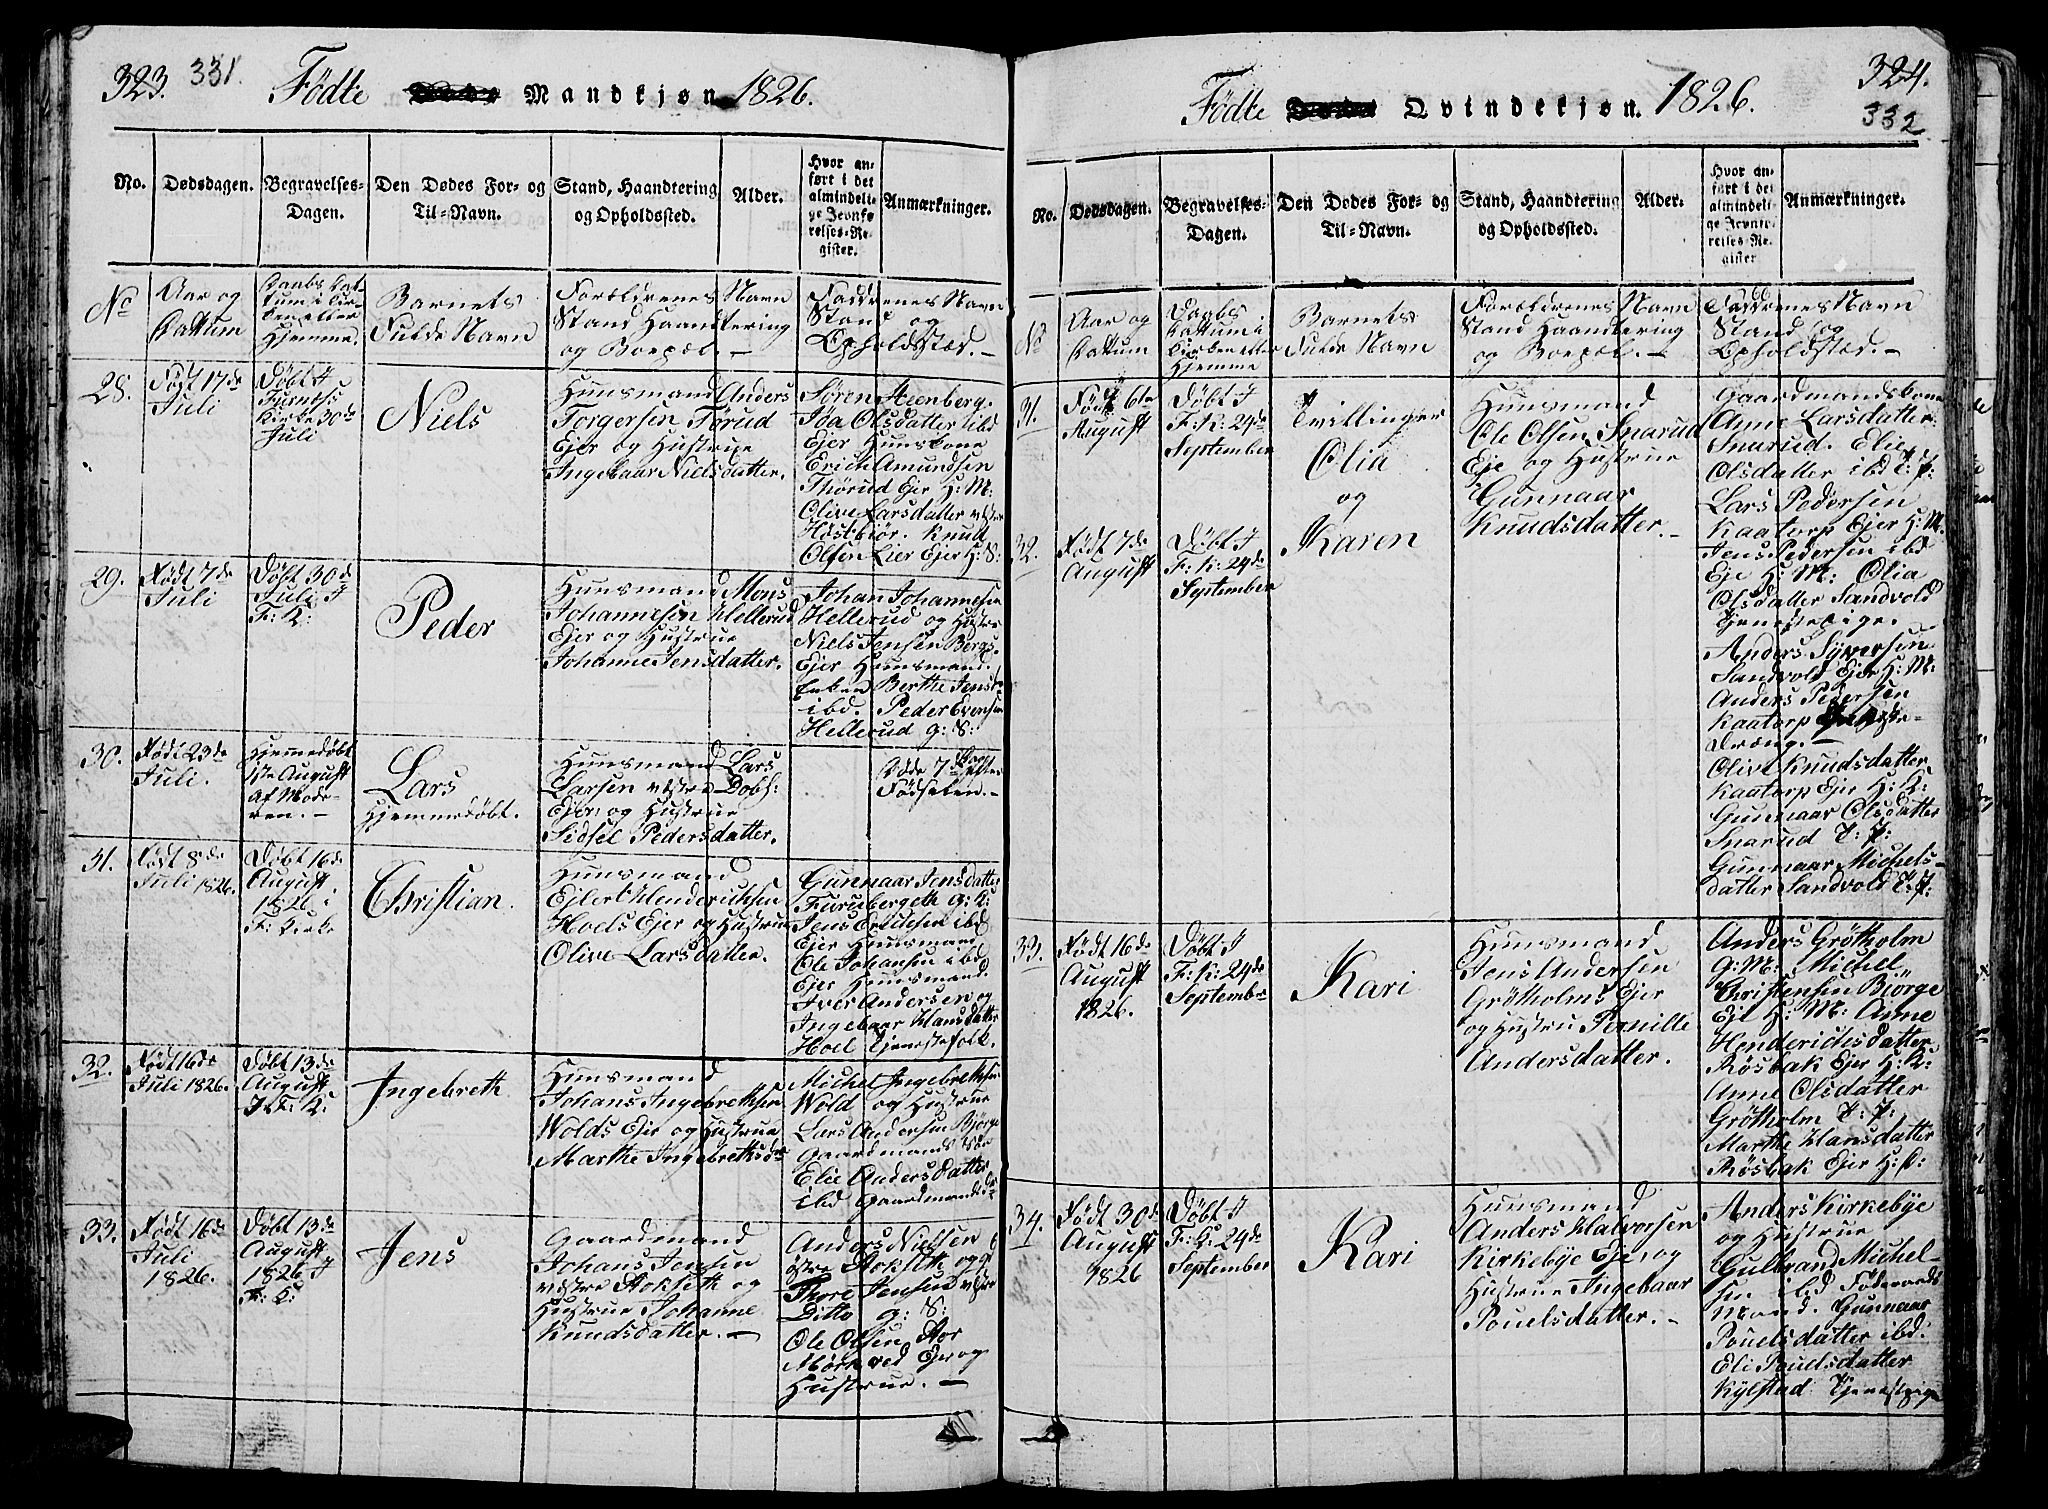 323. 331. Fødte Mandkjøn 1826.
No. Dødsdagen. Begravelses-Dagen. Den Dødes For- og Til-Navn. Stand, Haandtering og Opholdssted. Alder. Hvor anført i det almindelige Jevnførelses-Register. Anmærkninger.
No Aar og Dattum Daabs Dattum i Kirken eller Hjemme. Barnets Fulde Navn Forældrenes Navn Stand Haandtering og Boepæl. - Faddrenes Navn Stand og Opholdsstæd. -
28.
Født 17de
Juli
Døbt I
Furnæss
Kirke 30de
Juli
Niels
Huusmand Anders
Torgersen Tørud
Ejer og Hustrue
Ingebaar Nielsdatter.
Søren Steenberg.
Olsdatter ibd
Ejer Huuskone
Erich Amundsen
Thørud Ejer H: M:
Olive Larsdatter væstre
Høstbiør. Knud
Olsen Lier Ejer H: S:
29.
Født 7de
Juli
Døbt 30de
Juli I
F: K:
Peder
Huusmand Mons
Johannesen Hellerud
Ejer og Hustrue
Johanne Jensdatter.
Johan Johannesen
Hellerud og Hustru
Niels Jensen Bergs-
Ejer Huusmand.
Berthe Jensd
ibd. Peder Evensen
Hellerud g: S:
30.
Født 23de
Juli.
Hjemedøbt
1ste August
Af Mode-
ren. -
Lars
Hjemmedøbt.
Huusmand Lars
Larsen væstre Dobl:
Ejer og Hustrue
Sidsel Pedersdatter.
Døde 7de Dag efter
Fødselen. -
31.
Født 8de
Juli 1826.
Døbt 16de
August
1826 i
F: Kirke
Christian.
Huusmand
Ejlert Henderichsen
Hoels Ejer og Hustrue
Olive Larsdatter.
Gunnaar Jensdatter
Furuberget g: K:
Jens Erichsen ibd
Ejer Huusmand
Ole Johansen ibd
Ejer Huusmand.
Iver Andersen og
Ingebaar Hansdatter
Hoel Tjenestefolk.
32.
Født 16de
Juli 1826.
Døbt 13de
August
I F: K:
Ingebreth
Huusmand
Johans Ingebrethsen
Wolds Ejer og Hustrue
Marthe Ingebrethsdr
Michel Ingebrethsen
Wold og Hustrue
Lars Andersen Bjørge
Gaardmands Søn
Elie Anders Datter
ibd Gaardmands Dr
33.
Født 16de
Juli
1826.
Døbt 13de
August
1826 I
F: K:
Jens
Gaardmand
Johans Jensen
væstre Stokseth og
Hustrue Johanne
Knudsdatter. -
Anders Nielsen
østre Stokseth og
Thore Jensen væstre
Ditto g: S:
Ole Olsen Stor
Mørkved Ejer og
Hustrue. -
Fødte Qvindekjøn. 1826. 324.
332
No. Dødsdagen. Begravelses-Dagen. Den Dødes For- og Til-Navn. Stand, Haandtering og Opholdssted. Alder. Hvor anført i det almindelige Jevnførelses-Register Anmærkninger.
No Aar og Dattum Daabs Dattum i Kirken eller Hjemme Barnets Fulde Navn Forældrenes Navn Stand Haandtering og Boepæl. - Faddrenes Navn Stand og Opholdstæd. -
31.
Født 6te
August
Døbt I
F: K: 24de
September
Tvillinger
Olia
og
Huusmand
Ole Olsen Snarud
Eje og Hustrue
Gunnaar
Knudsdatter. -
Gaardmandskone
Anne Larsdatter
Snarud. Elie
Olsdatter ibd T: P:
Lars Pedersen
Kaatorp Ejer H: M:
Jens Pedersen ibd
Eje H: M: Olia
Olsdatter Sandvold
Tjenestepige.
32.
Født 7de
August
Døbt I
F: K: 24de
September
Karen
Anders Syversen
Sandvold Ejer H: M:
Anders Pedersen
Kaatorp
Dræng. -
Olive Knudsdatter
Kaatorp Ejer H: K:
Gunnaar Olsdatter
Snarud T: P:
Gunnaar Michels-
datter Sandvold T: P:
33.
Født 16de
August
1826.
Døbt I
F: K: 24de
September
Kari
Huusmand
Jons Andersen
Grötholms Ejer
og Hustru Pernille
Andersdatter.
Anders Grötholm
G: M: Michel
Christensen Biørge
Eje H: M: Anne
Henderichsdatter
Røsbak Ejer H: K:
Anne Olsdatter
Grötholm T: P:
Marthe Hansdatter
Røsbak Ejer H: P:
34.
Født 30de
August
1826
Døbt I
F: K: 24de
September
Kari
Huusmand
Anders Halvorsen
Kirkebye Ejer og
Hustrue Ingebaar
Pouelsdatter. -
Anders Kirkebye
og Hustrue
Gulbrand Michel-
sen ibd Føderaads
Mand. Gunnaar
Pouelsdatter ibd.
Eli Pouelsdatter
Kylstad Tjenestpige